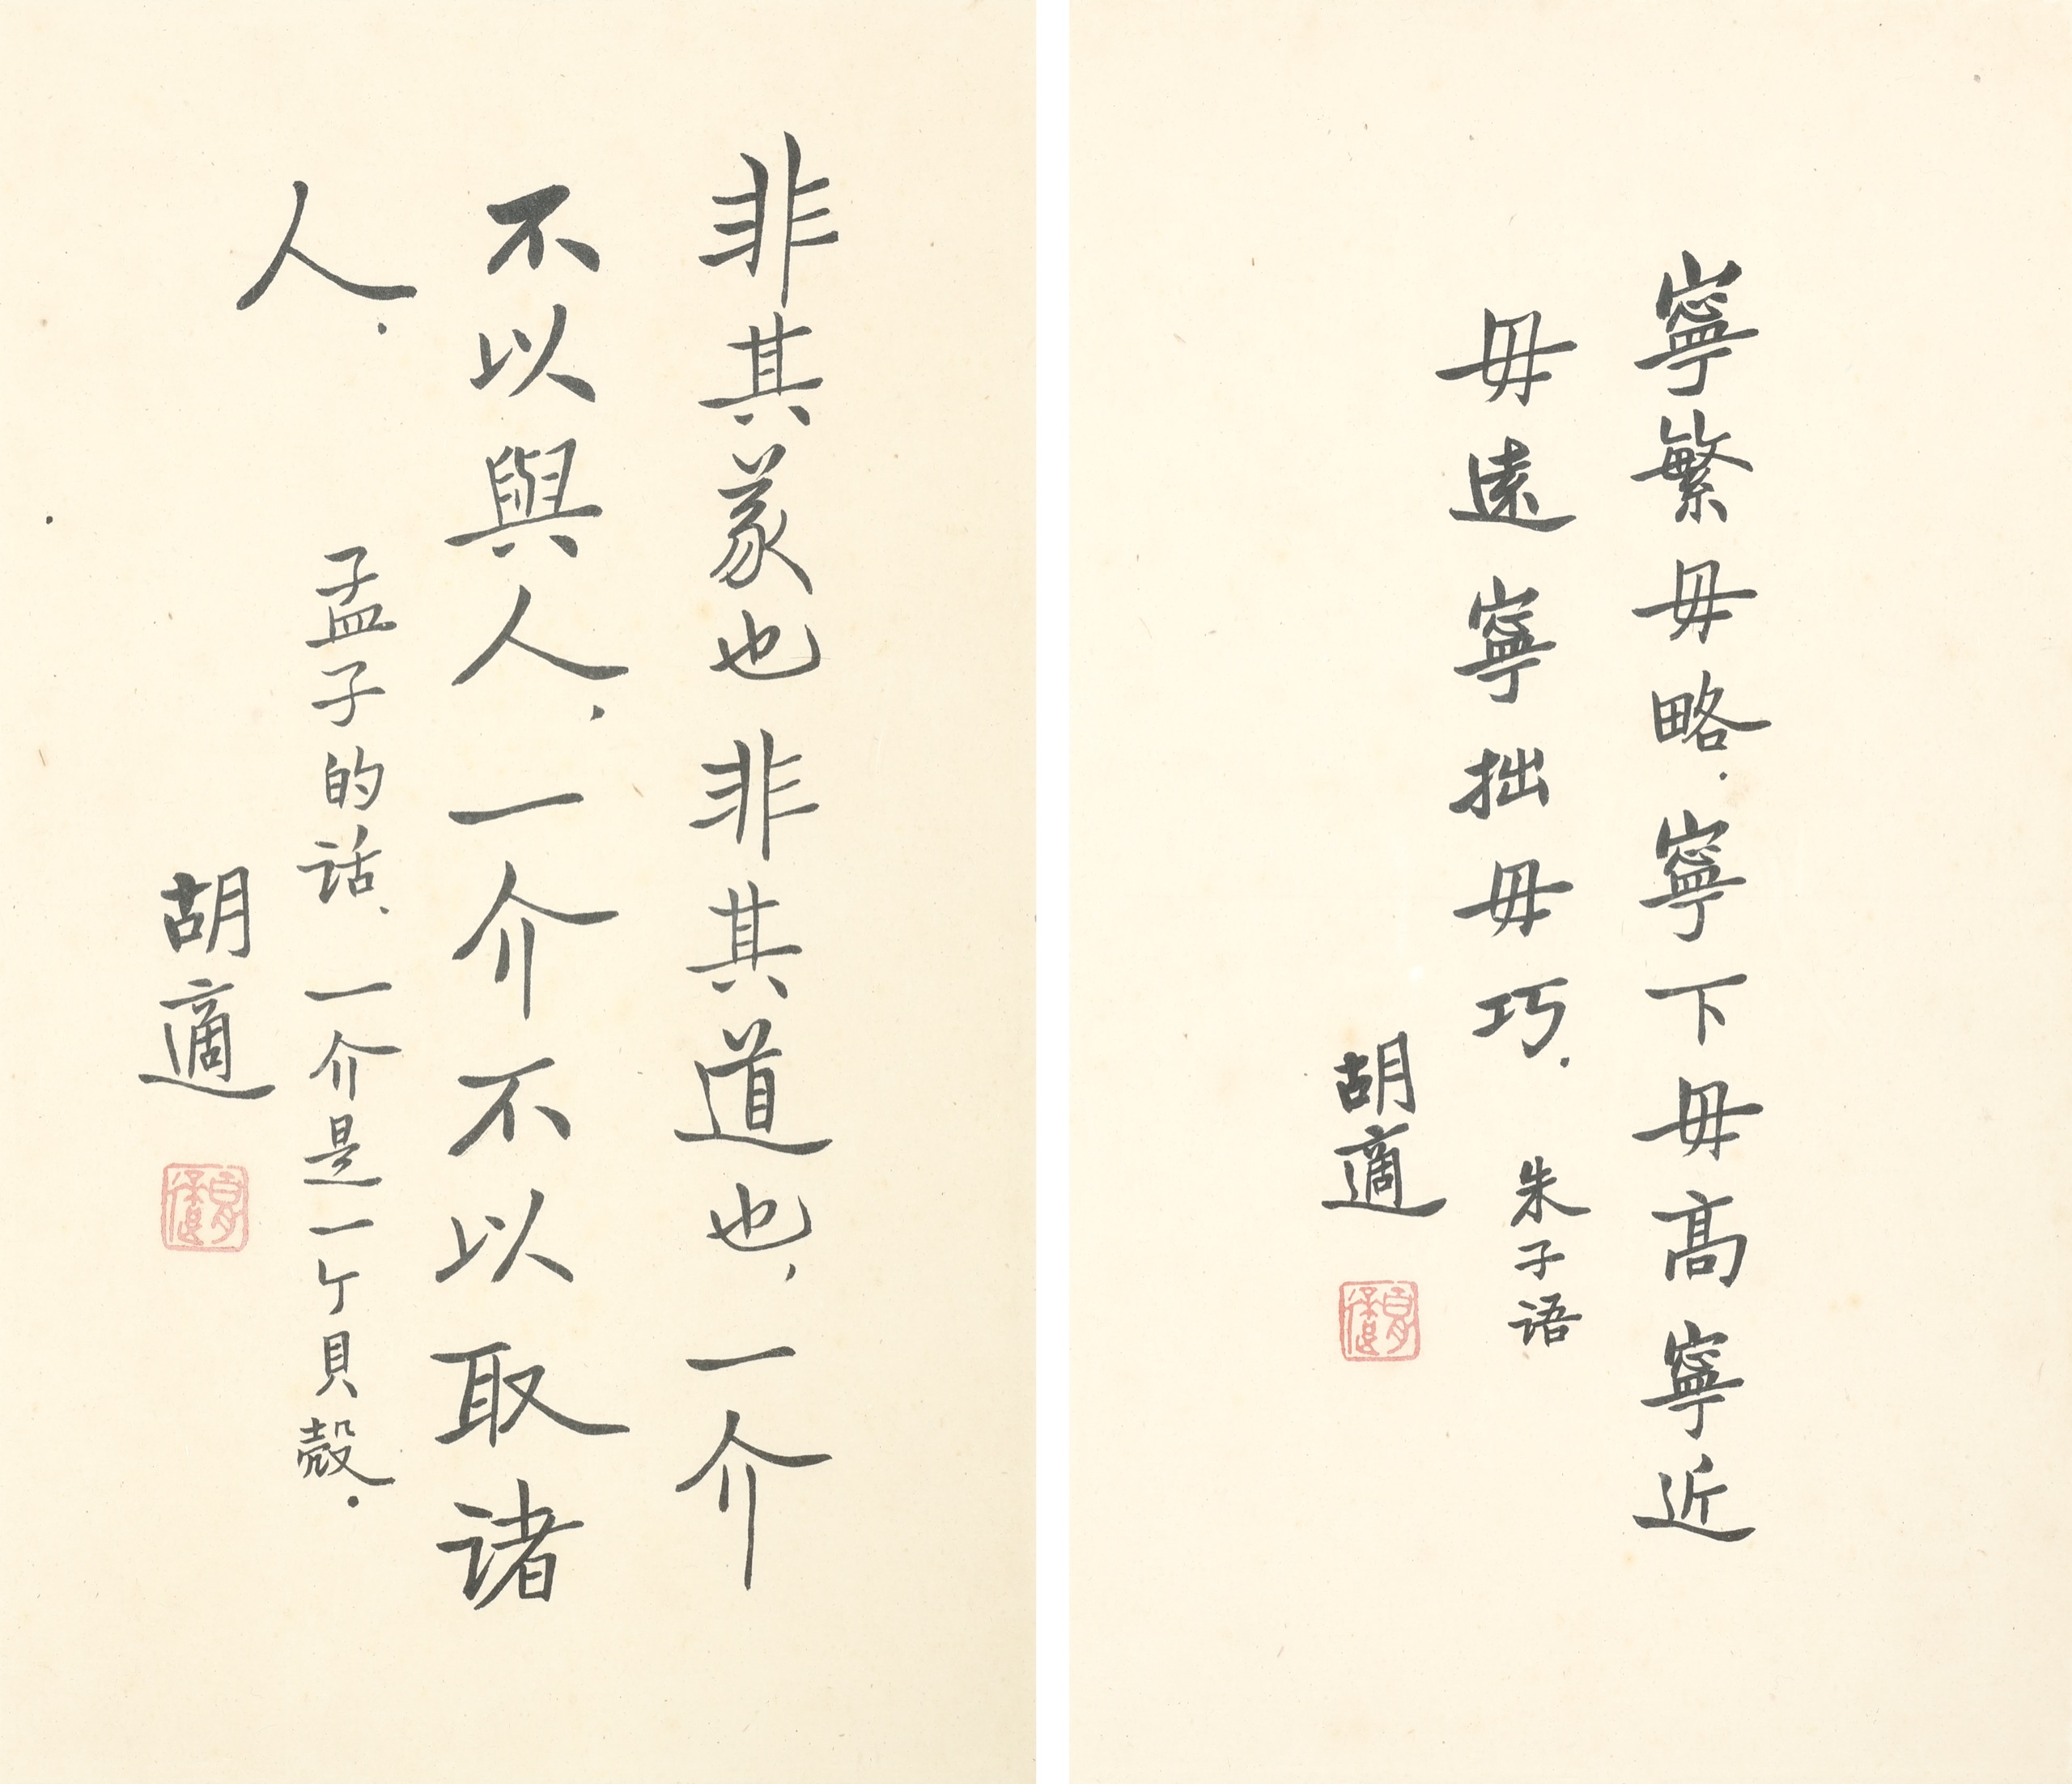 寧繁毋略.寧下毋高寧近
毋遠寧拙毋巧.
朱子语
胡適
非其義也非其道也,一介
不以與人,一介不以取诸
人.
孟子的话.一介是一亇貝殼.
胡適